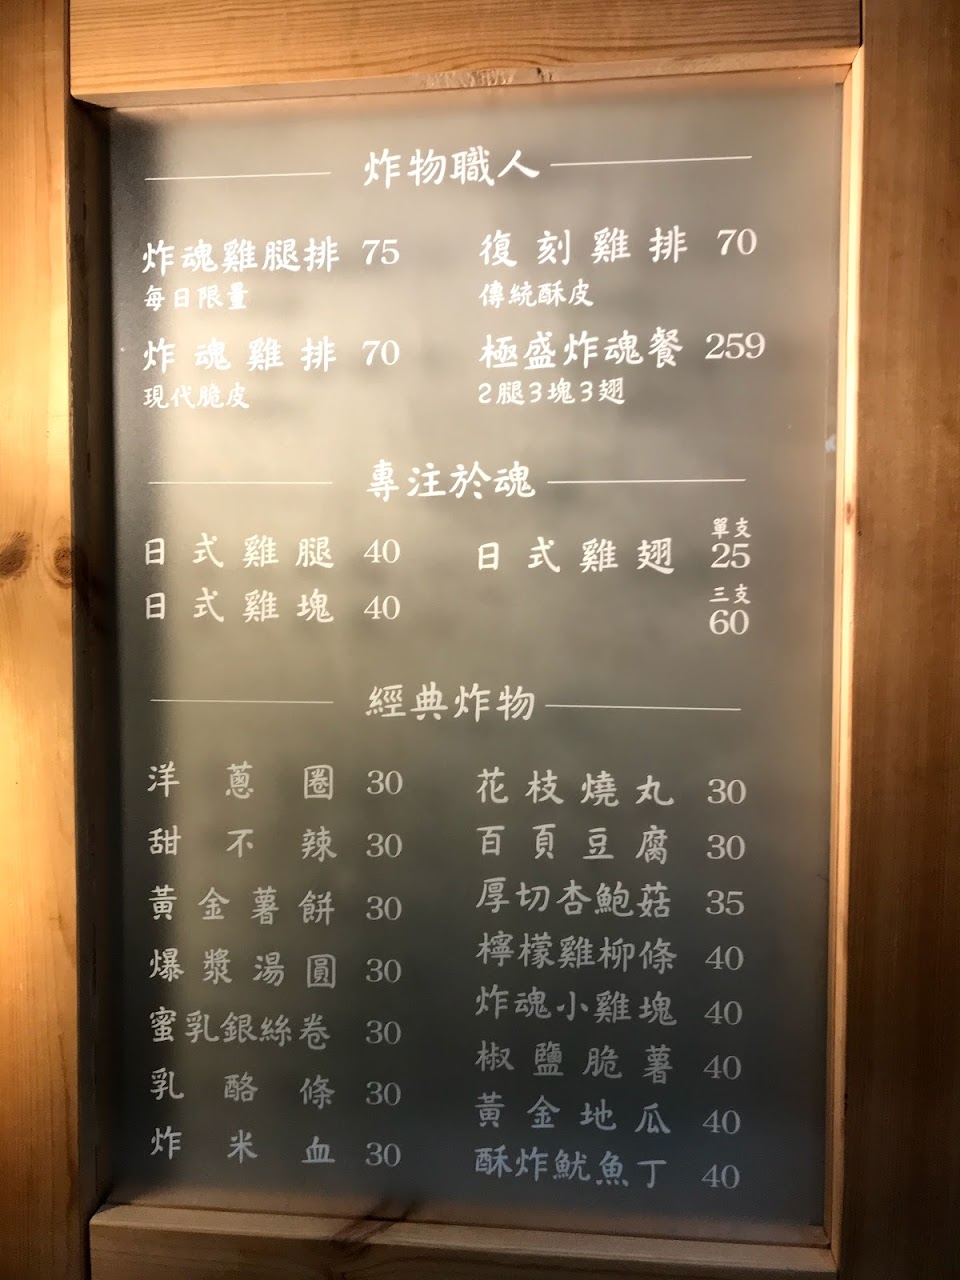 炸物職人
炸魂雞腿排 75
每日限量
炸魂雞排 70
現代脆皮
復刻雞排 70
傳統酥皮
極盛炸魂餐 259
2腿3塊3翅
專注於魂
日式雞腿 40
日式雞塊 40
日式雞翅
單支
25
三支
60
經典炸物
洋蔥圈 30
甜不辣 30
黃金薯餅 30
爆漿湯圓 30
蜜乳銀絲卷 30
乳酪條 30
炸米血 30
花枝燒丸 30
百頁豆腐 30
厚切杏鮑菇 35
檸檬雞柳條 40
炸魂小雞塊 40
椒鹽脆薯 40
黃金地瓜 40
酥炸魷魚丁 40